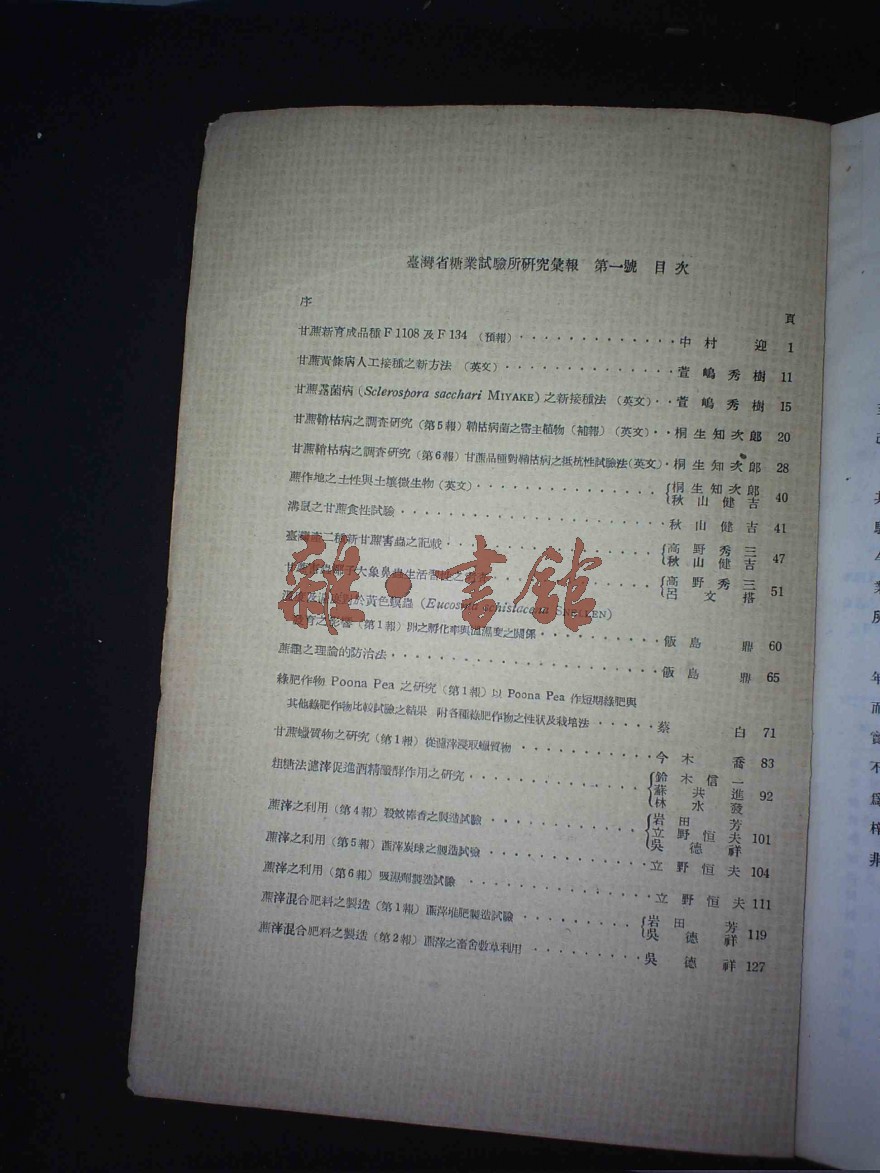 臺灣省糖業試驗所研究彙報 第一號 目次
序
頁
甘蔗新育成品種 F 1108 及 F 134 (預報)・・・・・・・・・・・・・中村 迎 1
甘蔗黃條病人工接種之新方法 (英文)・・・・・・・・・・・・・・萱嶋秀樹 11
甘蔗露菌病 (Sclerospora sacchari MIYAKE) 之新接種法 (英文)・・萱嶋秀樹 15
甘蔗鞘枯病之調查研究 (第5報) 鞘枯病菌之寄主植物 (補報) (英文)・・桐生知次郎 20
甘蔗鞘枯病之調查研究 (第6報) 甘蔗品種對鞘枯病之抵抗性試驗法(英文)・桐生知次郎 28
蔗作地之土性與土壤微生物 (英文)・・・・・・・・・・・・・・・{桐生知次郎 秋山健吉 40
溝鼠之甘蔗食性試驗・・・・・・・・・・・・・・・・・・・秋山健吉 41
臺灣產二種新甘蔗害蟲之記載・・・・・・・・・・・・・・・{高野秀三 秋山健吉 47
甘蔗害蟲 大象鼻蟲生活習性之 ・・・・・・・・・{高野秀三 呂文搭 51
對於黃色螟蟲 (Eucosma schistaceana SNELLEN)
發育之影響 (第1報) 卵之孵化率與溫濕度之關係・・・・・・・・・飯島鼎 60
蔗龜之理論的防治法・・・・・・・・・・・・・・・・・・・・・飯島鼎 65
綠肥作物 Poona Pea 之研究 (第1報) 以 Poona Pea 作短期綠肥與
其他綠肥作物比較試驗之結果 附各種綠肥作物之性狀及栽培法・・・・・蔡白 71
甘蔗蠟質物之研究 (第1報) 從濾滓浸取蠟質物・・・・・・・・・・今木喬 83
粗糖法濾滓促進酒精醱酵作用之研究・・・・・・・・・・・・・{鈴木信一 蘇共進 林水發 92
蔗滓之利用 (第4報) 殺蚊棒香之製造試驗・・・・・・・・・・・{岩田芳 立野恒夫 吳德祥 101
蔗滓之利用 (第5報) 蔗滓炭球之製造試驗・・・・・・・・・・・・立野恒夫 104
蔗滓之利用 (第6報) 吸濕劑製造試驗・・・・・・・・・・・・・立野恒夫 111
蔗滓混合肥料之製造 (第1報) 蔗滓堆肥製造試驗・・・・・・・・{岩田芳 吳德祥 119
蔗滓混合肥料之製造 (第2報) 蔗滓之畜舍敷草利用・・・・・・・・吳德祥 127
雜・書館